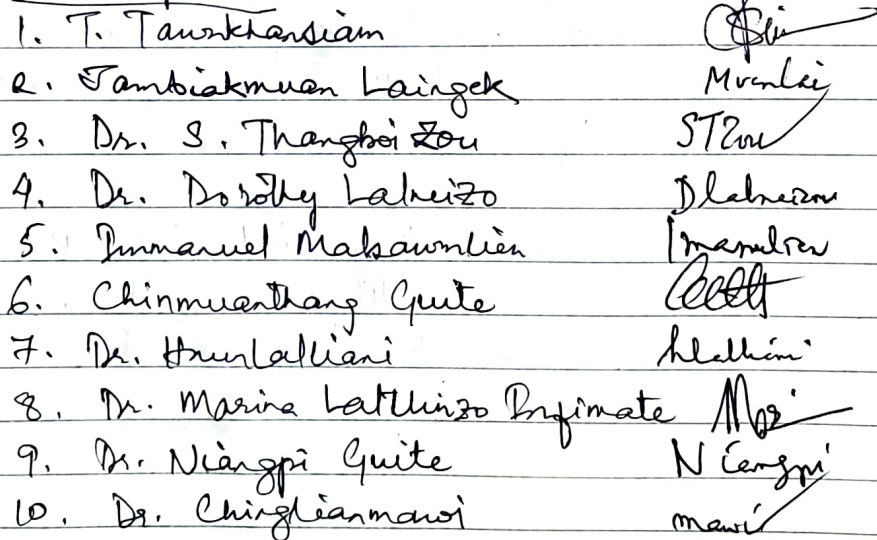 1. T. Tawnkhansiam
2. Jambiakmuan Laingek Muanlai
3. Dr. S. Thangboi Zou STZou
4. Dr. Dorothy Lalneizo Dlalneizou
5. Immanuel Malsawmlien Imanulien
6. Chinmuanthang Guite
7. Dr. Hmunlalliani hlalliani
8. Dr. Marina Lalthinzo Infimate
9. Dr. Niangpi Guite Niangpi
10. Dr. Chinglianmawi mawi